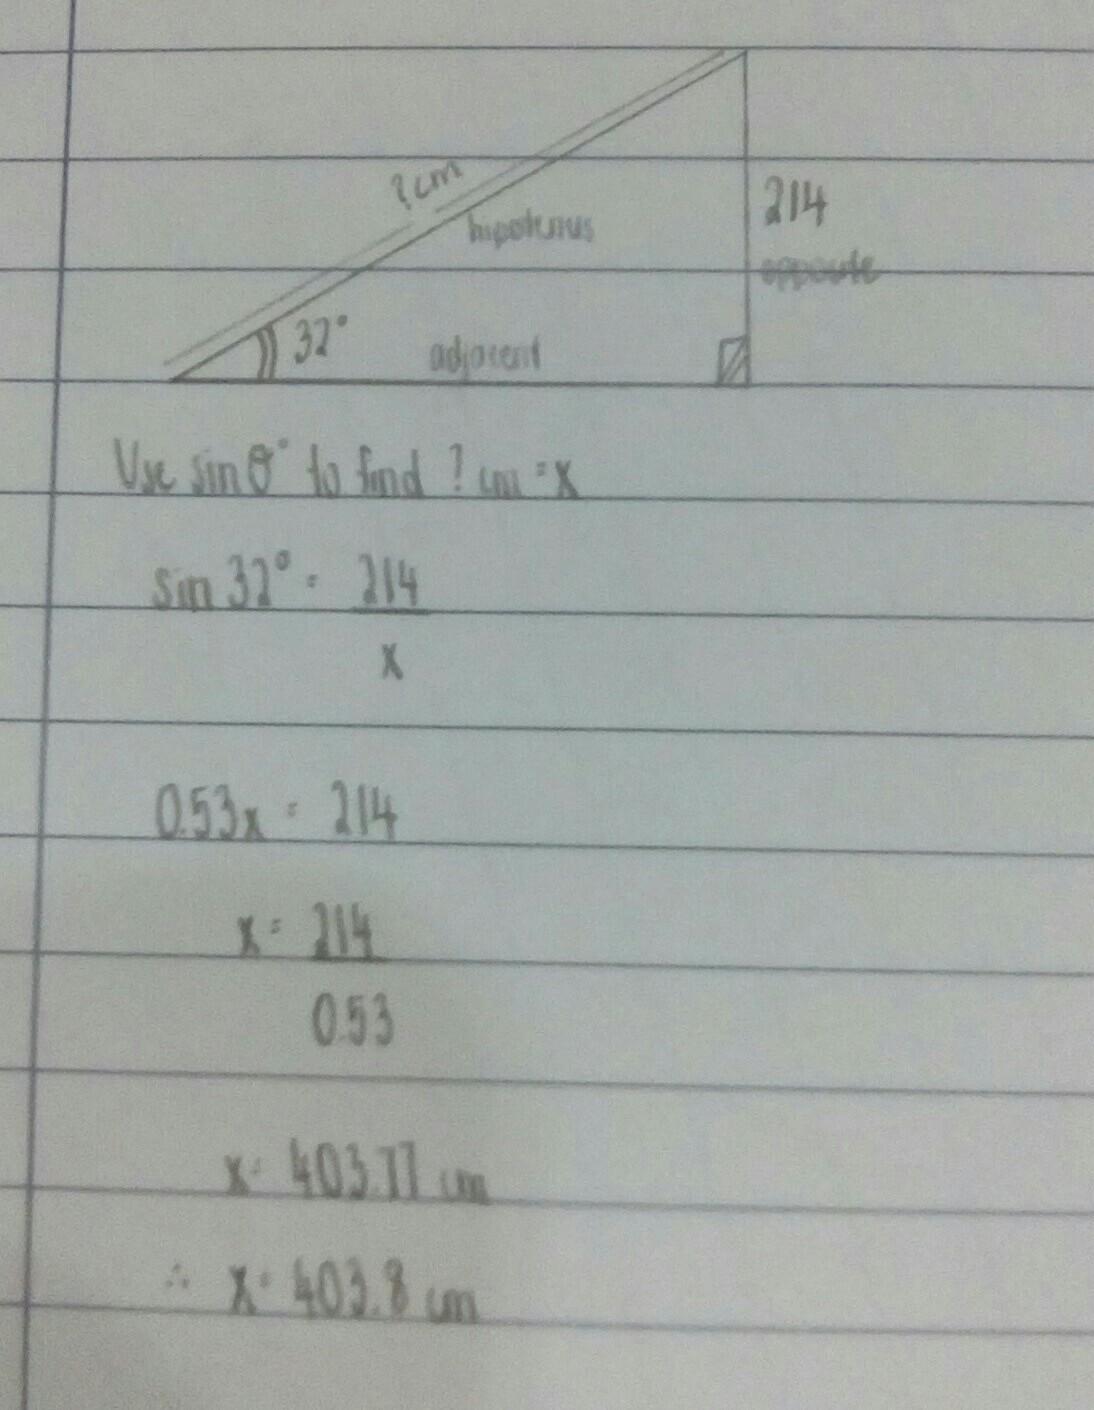 ?cm
hipotenus
214
opposite
32°
adjacent
Use sin θ° to find ? cm = x
sin 32° = 214
x
0.53x = 214
x = 214
0.53
x = 403.77 cm
∴ x = 403.8 cm